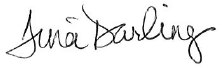 Tina Darling